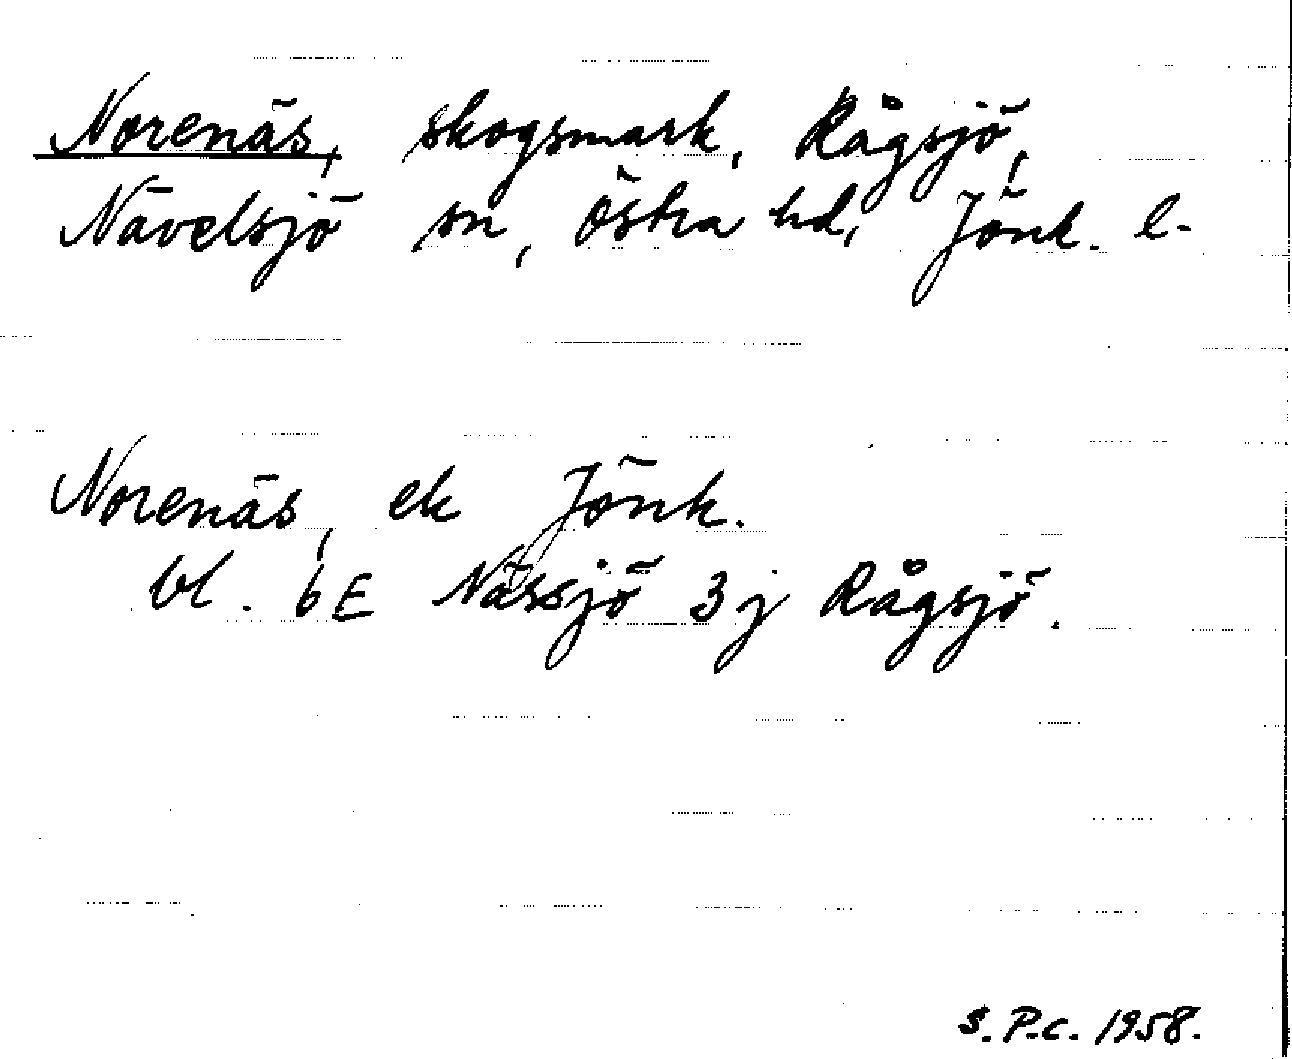 Norenäs, skogsmark, Rågsjö,
Nävelsjö sn, Östra hd, Jönk. l.
Norenäs, ek Jönk.
bl. 6E Nässjö 3j Rågsjö.
S. P-c. 1958.